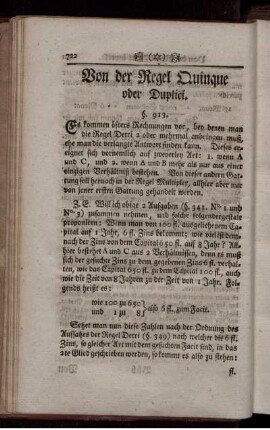 722 ❦ (☼) ❦
Von der Regel Quinque
oder Duplici.
§. 913.
Es kommen öfters Rechnungen vor, bey denen man
die Regel Detri 2 oder mehrmal anbringen muß,
ehe man die verlangte Antwort finden kann. Dieses er
eignet sich vornemlich auf zweyerley Art: 1. wenn A
und C, und 2. wenn A und B mehr als nur aus einer
einzigen Verhältniß bestehen. Von dieser andern Gat
tung soll hernach in der Regel Multiplex, allhier aber nur
von jener ersten Gattung gehandelt werden.
Z. E. Will ich obige 2 Aufgaben (§. 341. N° 1 und
N° 3) zusammen nehmen, und solche folgendergestalt
proponiren: Wenn man von 100 fl. ausgeliehenem Ca
pital auf 1 Jahr, 6 fl. Zins bekommt; wie viel ist
nach der Zins von dem Capital 650 fl. auf 8 Jahr? All
hier bestehet A und C aus 2 Verhältnissen, denn es muß
sich der gesuchte Zins zu dem gegebenen Zins 6 fl. verhal
ten, wie das Capital 650 fl. zu dem Capital 100 fl., auch
wie die Zeit von 8 Jahren zu der Zeit von 1 Jahr. Fol
gends heißt es:
wie 100 zu 650 } also 6 fl. zum Facit.
und 1 zu 8
Setzet man nun diese Zahlen nach der Ordnung des
Aufsatzes der Regel Detri (§. 349) nach welcher die 6 fl.
Zins, so gleicher Art mit dem gesuchten Facit sind, in das
2te Glied geschrieben werden, so kommt es also zu stehen:
fl.